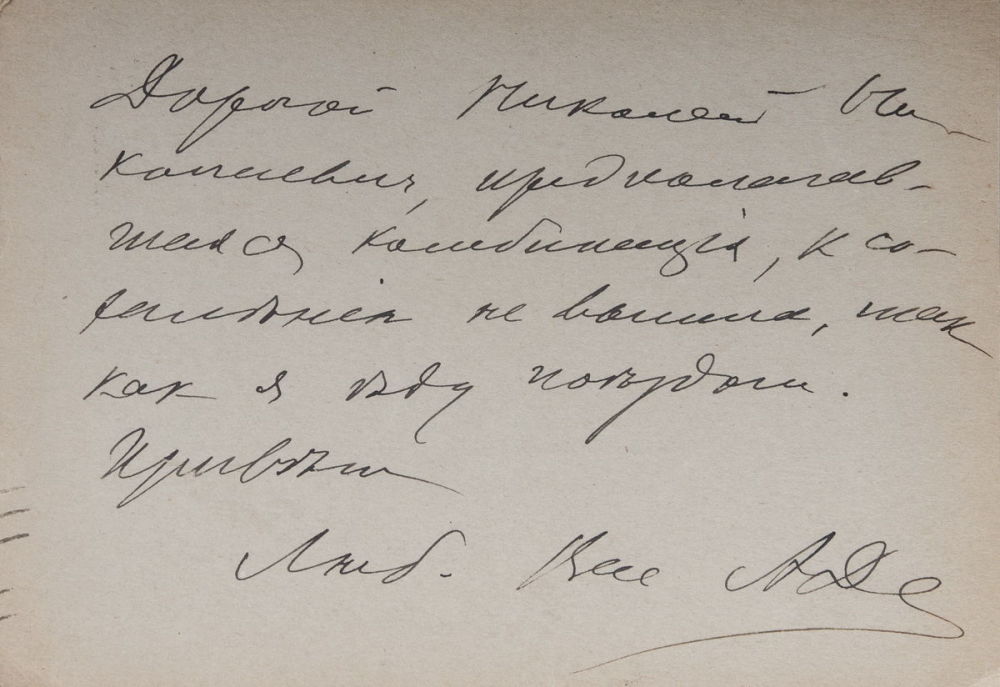 Дорогой Николай Ни-
колаевич, предполагав-
шаяся комбинація, к со-
жалѣнію не вышла, так
как я ѣду поѣздом.
Привѣт
Люб. Вас АД